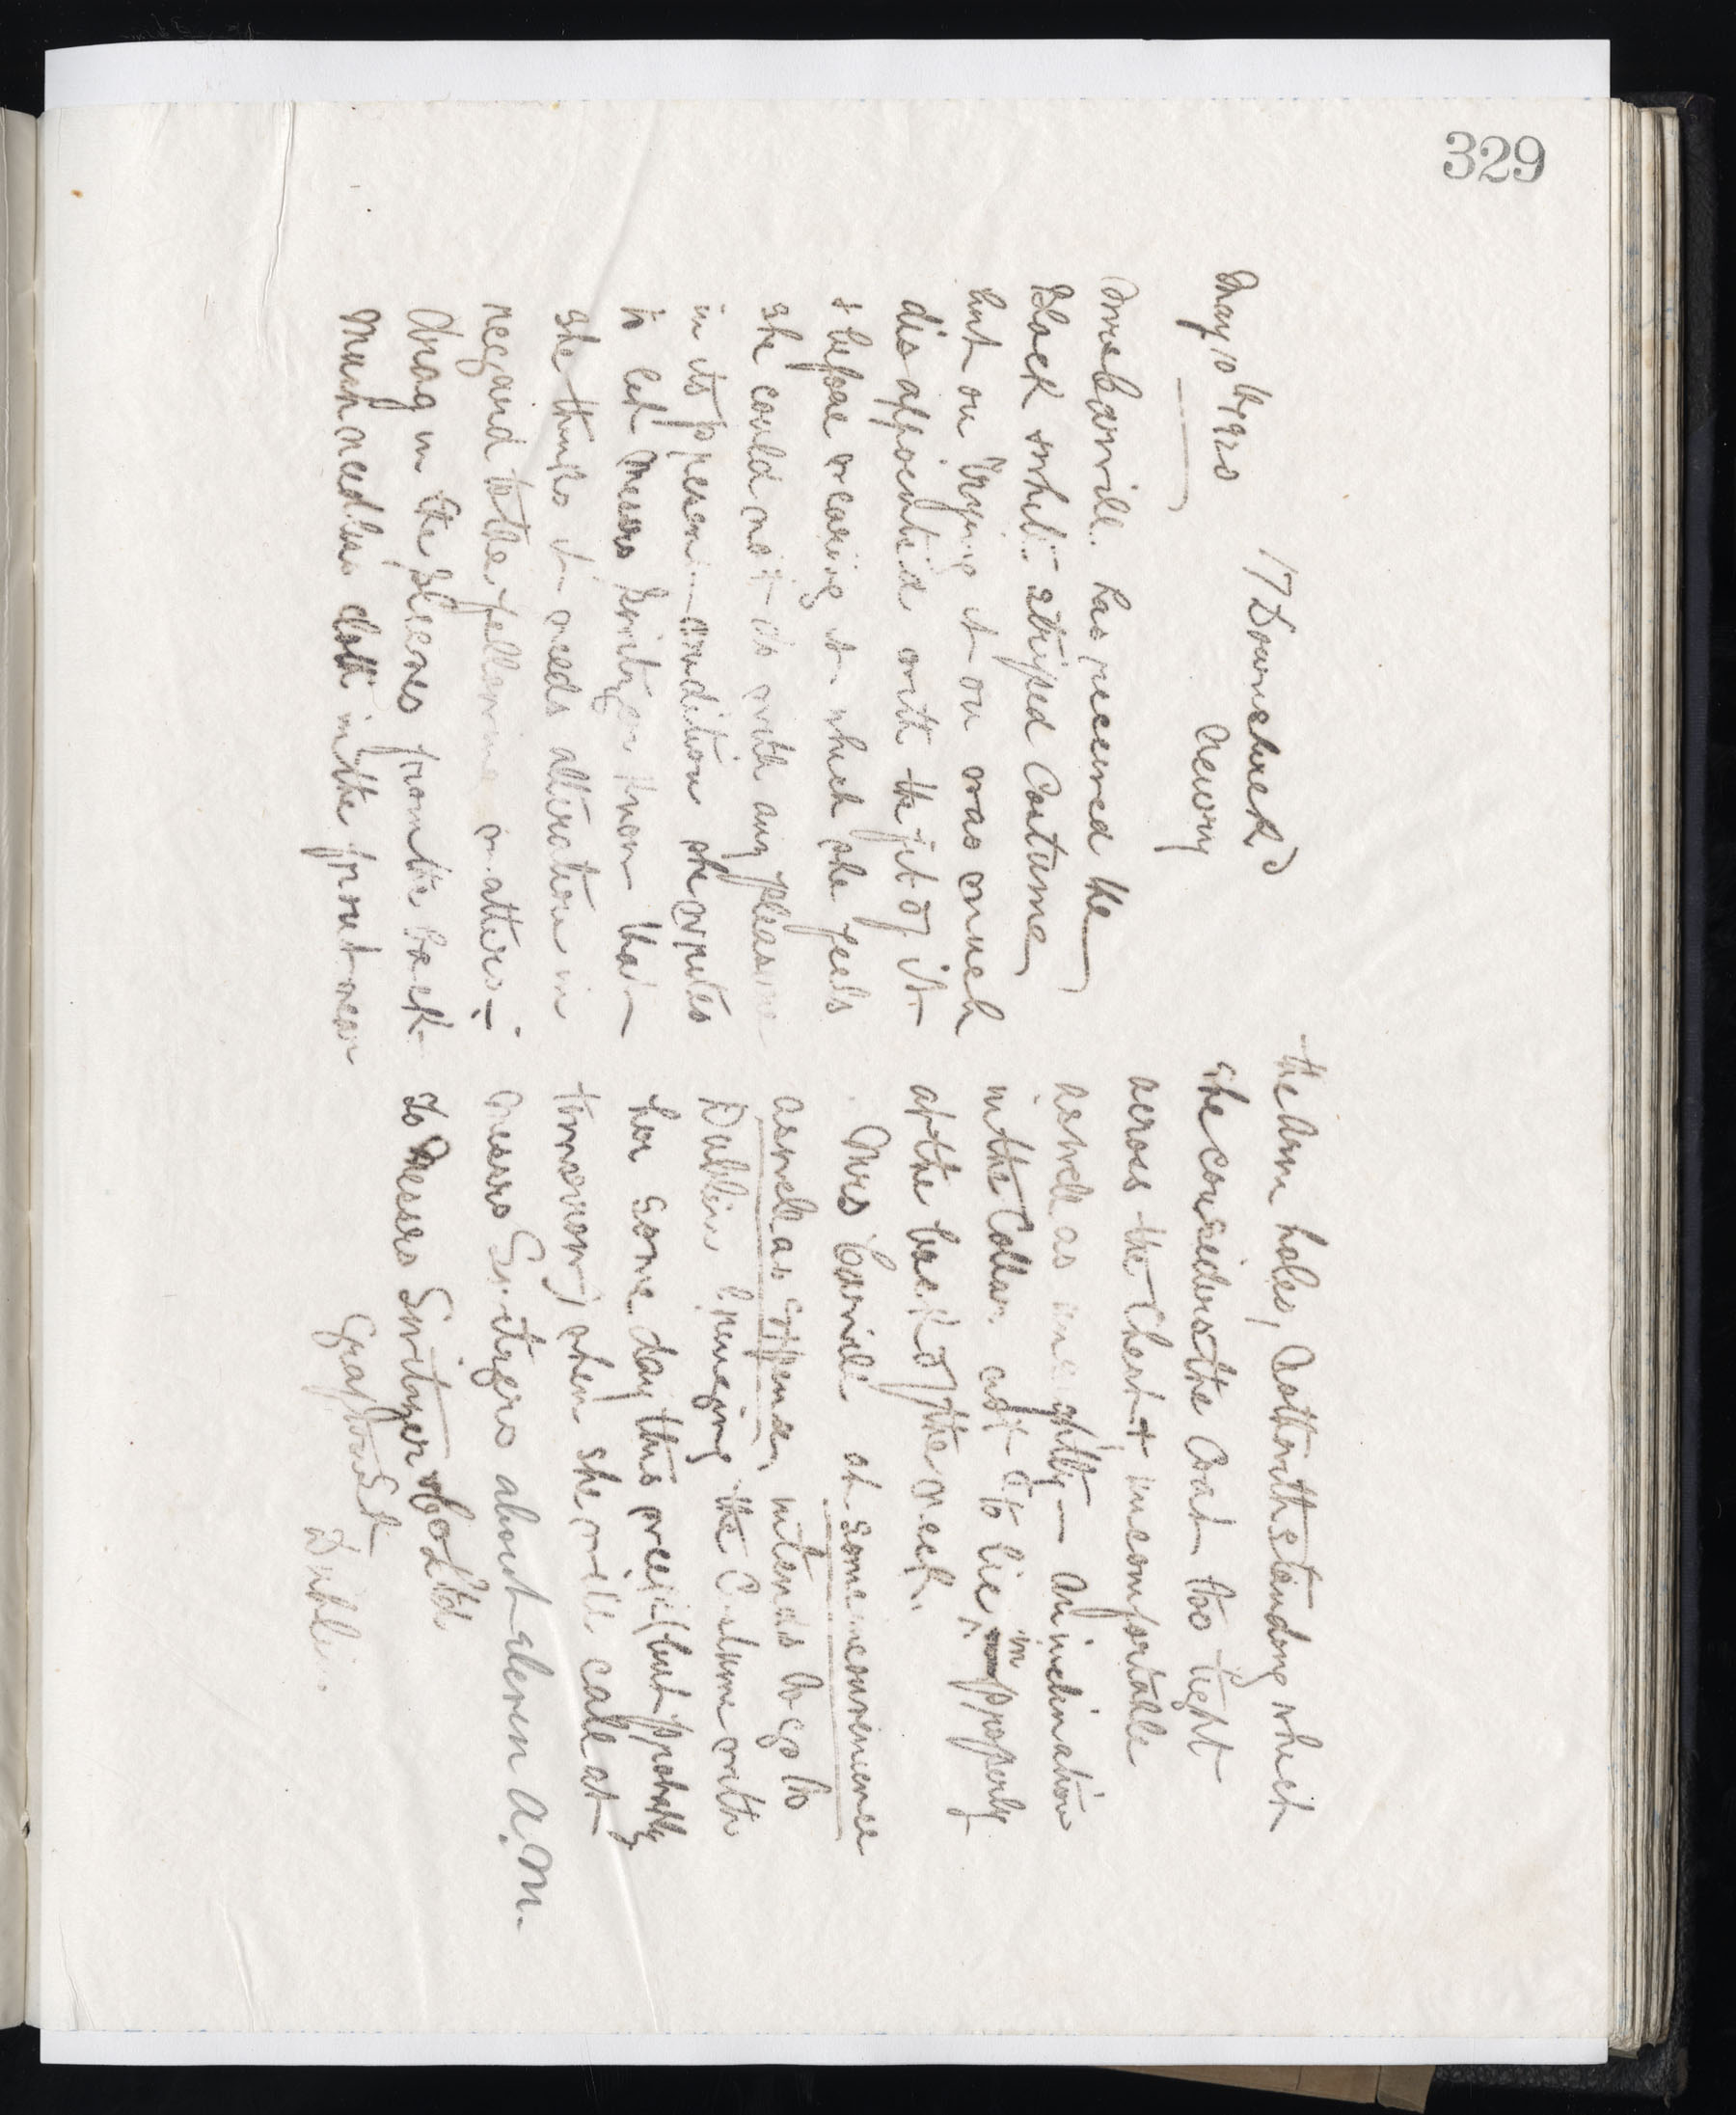 329
17 Downshire Rd
Newry
May 10th 1920
Mrs Carvill has received the
Black & white striped Costume
but on trying it on was much
disappointed with the fit of it
& before wearing it which she feels
she could not do with any pleasure
in its present condition she writes
to let Messrs Switzer know that
she thinks it needs alteration in
regard to the following matters:-
drag in the sleeves from the back
Much needless cloth in the front near
the arm holes, notwithstanding which
she considers the Coat too tight
across the Chest & incomfortable
as well as unsightly — an inclination
in the Collar not to lie in properly
at the back of the neck.
Mrs Carvill at some inconvenience
as well as expense, intends to go to
Dublin bringing the Costume with
her some day this week (but probably
tomorrow) when she will call at
Messrs Switzers about eleven a.m.
To Messrs Switzer & Co Ltd
Grafton St
Dublin.